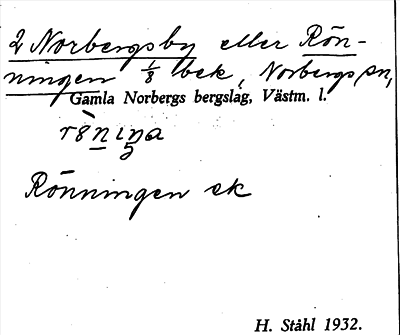 2 Norbergsby eller Rön-
ningen 1/8 bek, Norbergs sn,
Gamla Norbergs bergslag, Västm. l.
Rönningen ek
H. Ståhl 1932.